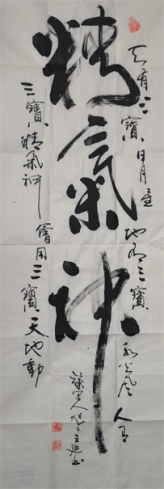 精氣神
天有三寶日月星地有三寶水火風人有
三寶精氣神會用三寶天地動